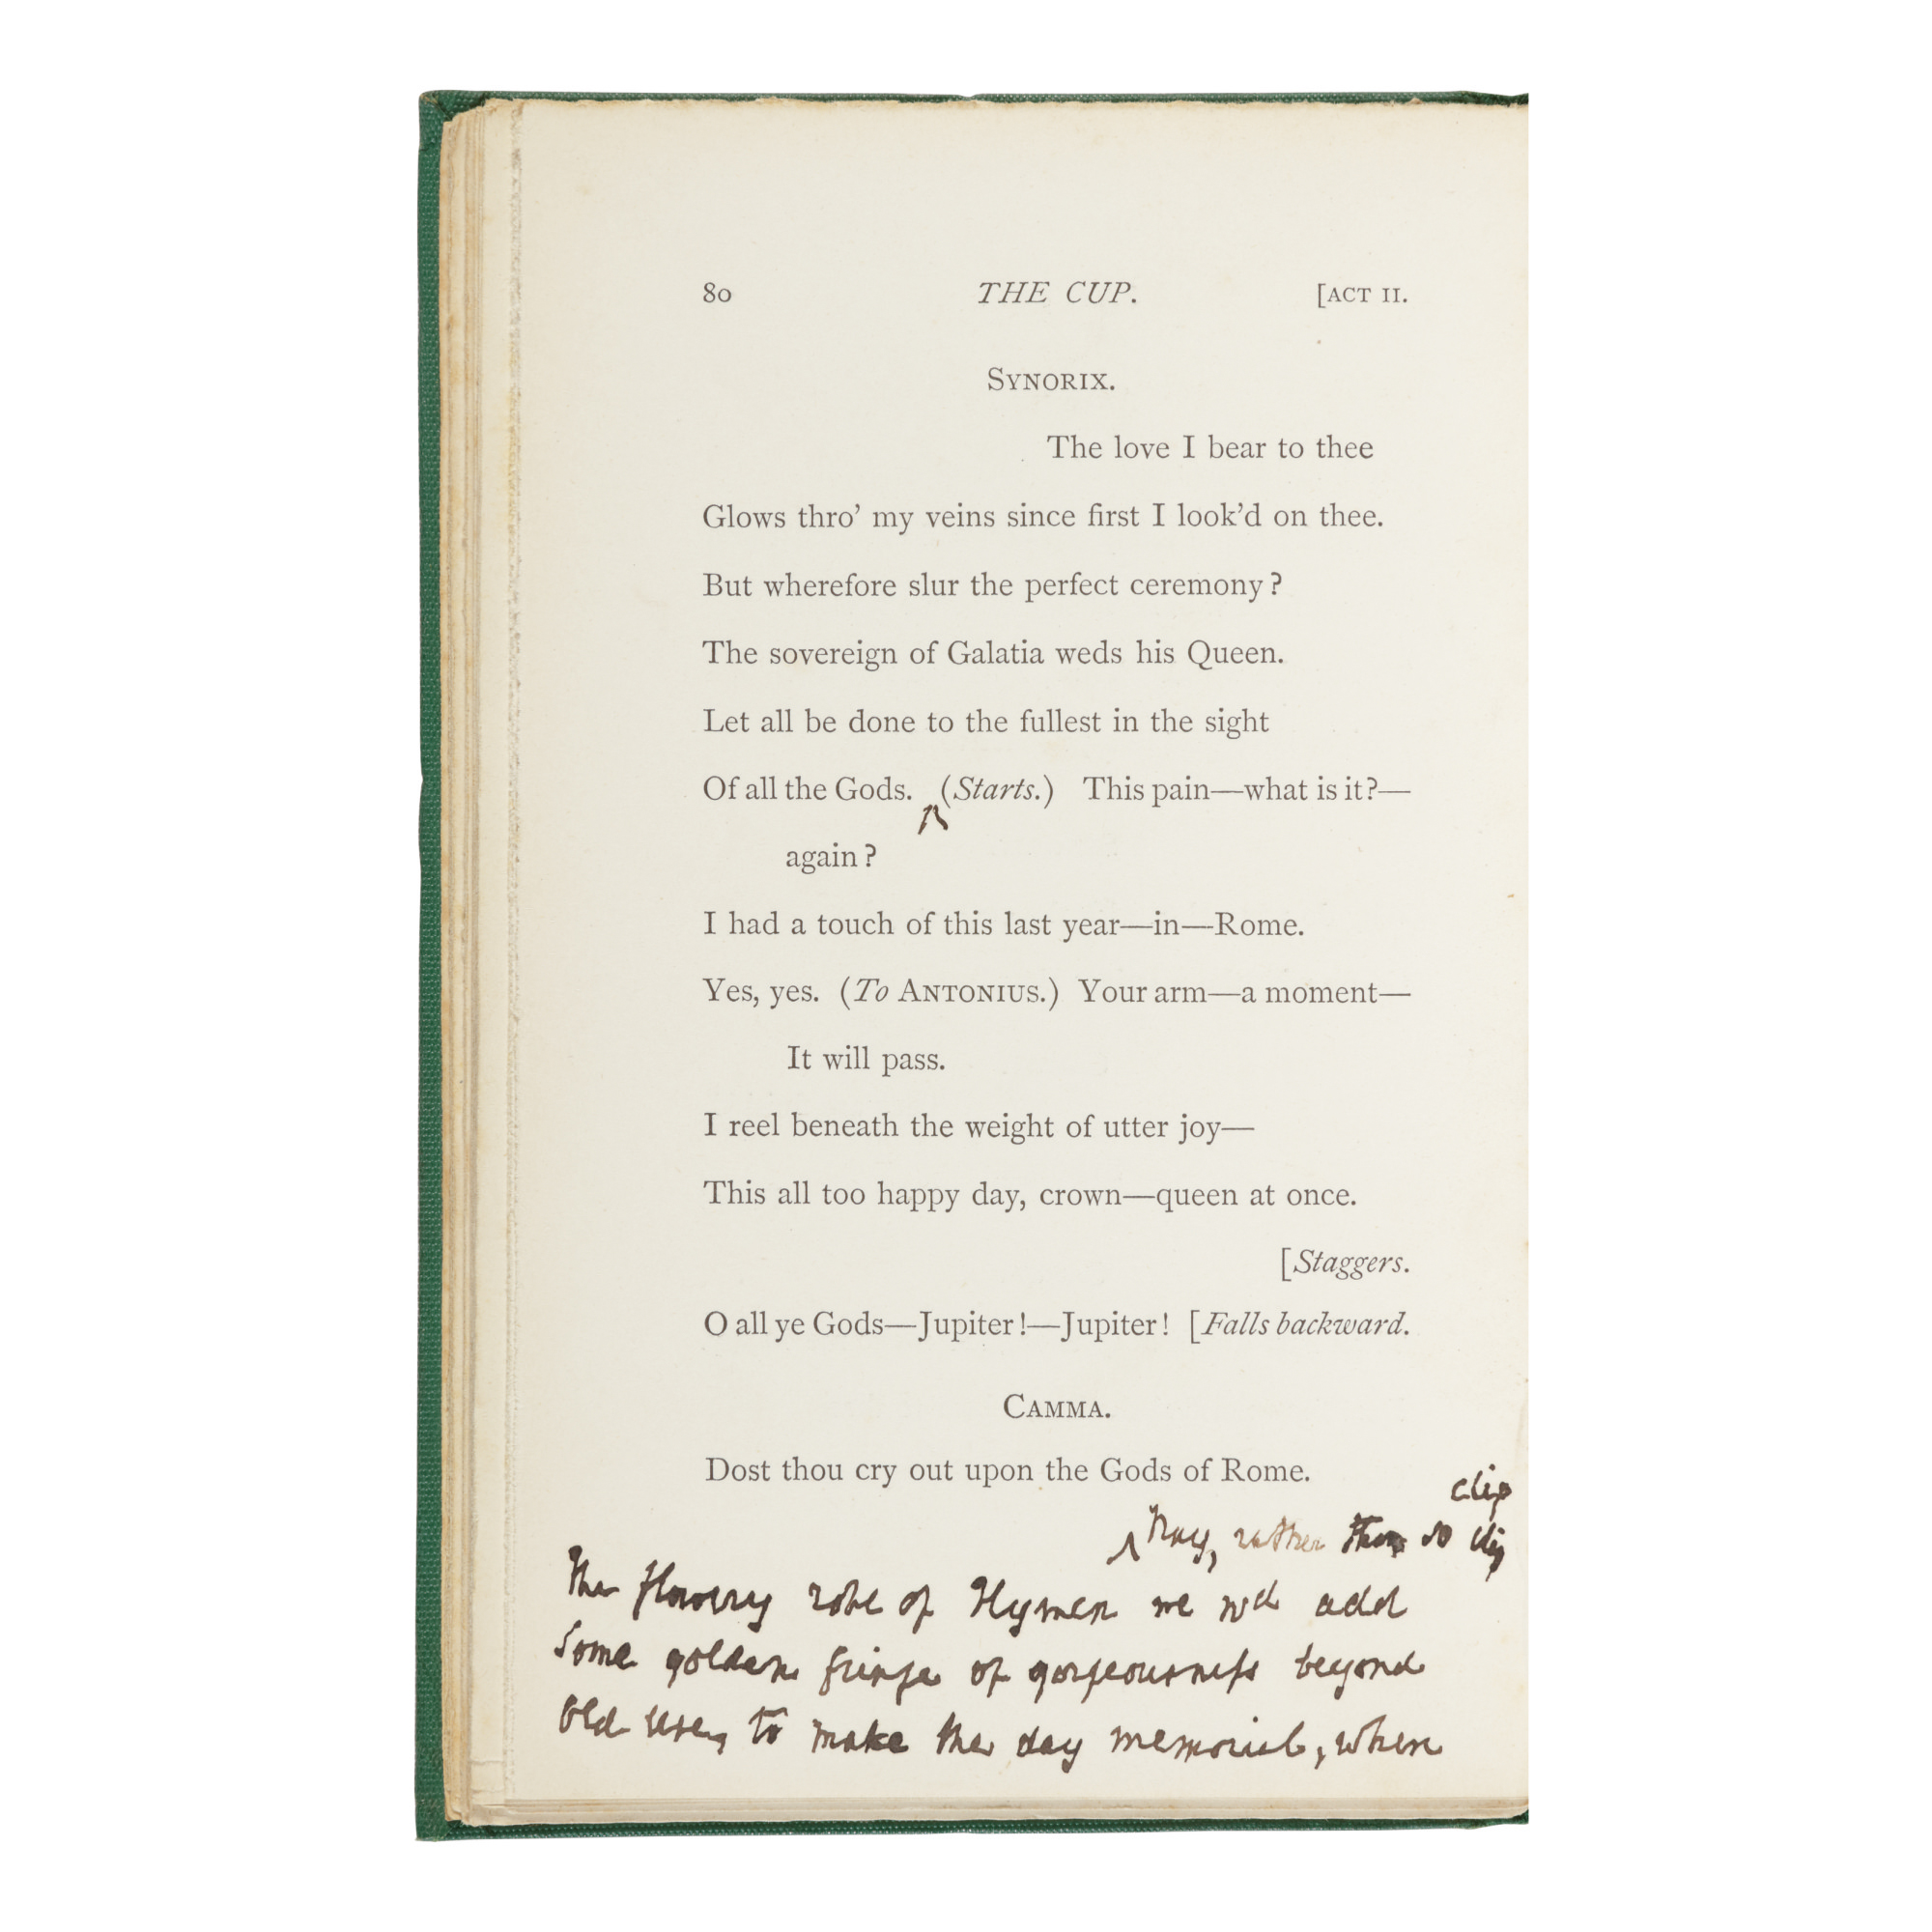 80 THE CUP. [ACT II.
SYNORIX.
The love I bear to thee
Glows thro’ my veins since first I look’d on thee.
But wherefore slur the perfect ceremony?
The sovereign of Galatia weds his Queen.
Let all be done to the fullest in the sight
Of all the Gods. (Starts.) This pain—what is it?—
again?
I had a touch of this last year—in—Rome.
Yes, yes. (To ANTONIUS.) Your arm—a moment—
It will pass.
I reel beneath the weight of utter joy—
This all too happy day, crown—queen at once.
[Staggers.
O all ye Gods—Jupiter!—Jupiter! [Falls backward.
CAMMA.
Dost thou cry out upon the Gods of Rome.
clip
Nay, rather than so clip
The flowery robe of Hymen we wd add
Some golden fringe of gorgeousness beyond
Old use, to make the day memorial, when